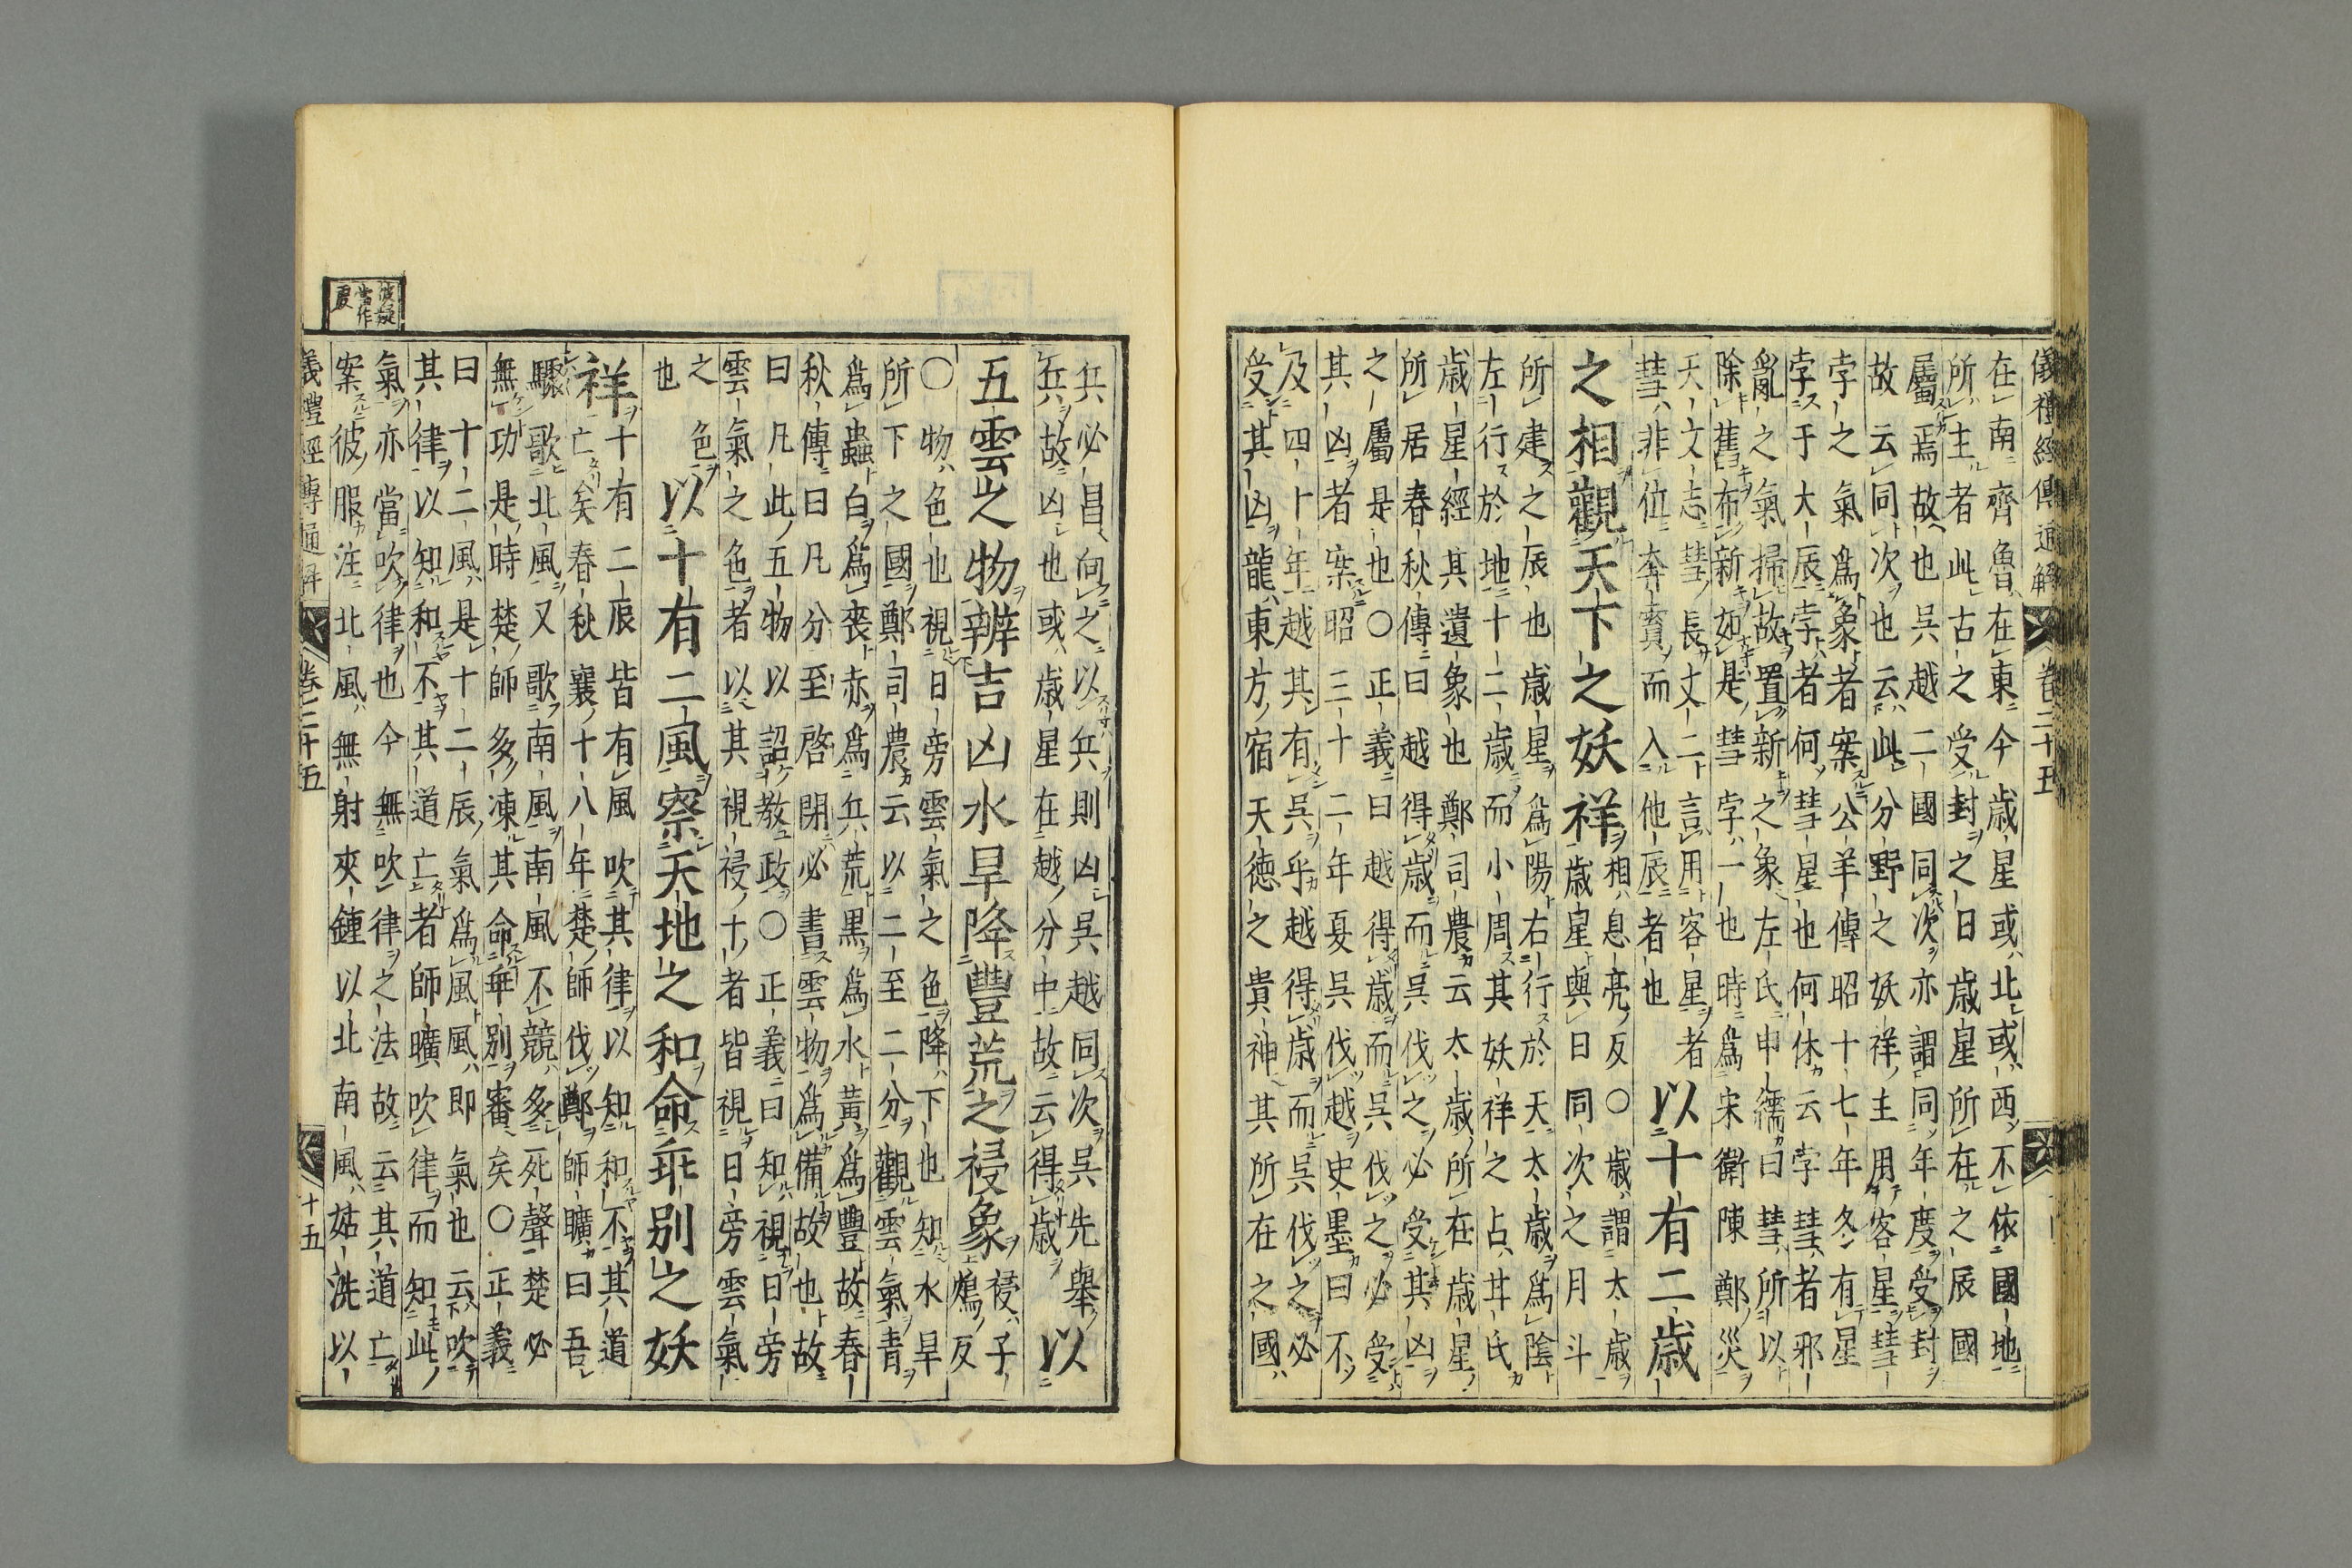 儀禮經傳通解 卷二十五
在南齊魯在東今歲星或北或西不依國地
所主者此古之受封之日歲星所在之辰國
屬焉故也吳越二國同次亦謂同年度受封
故云同次也云此分野之妖祥主用客星彗
孛之氣爲象者案公羊傳昭十七年冬有星
孛于大辰孛者何彗星也何休云孛彗者邪
亂之氣掃故置新之象左氏申繻曰彗所以
除舊布新如是彗孛一也時爲宋衛陳鄭災
天文志彗長丈二言用客星者
彗非位奔賁而入他辰者也
以十有二歲
之相觀天下之妖祥
相息亮反○歲謂太歲
歲星與日同次之月斗
所建之辰也歲星爲陽右行於天太歲爲陰
左行於地十二歲而小周其妖祥之占甘氏
歲星經其遺象也鄭司農云太歲所在歲星
所居春秋傳曰越得歲而吳伐之必受其凶
之屬是也○正義曰越得歲而吳伐之必受
其凶者案昭三十二年夏吳伐越史墨曰不
及四十年越其有吳乎越得歲而吳伐之必
受其凶龍東方宿天德之貴神其所在之國
兵必昌向之以兵則凶吳越同次吳先舉
兵故凶也或歲星在越分中故云得歲
以
五雲之物辨吉凶水旱降豐荒之祲象
祲子
鴆反
○物色也視日旁雲氣之色降下也知水旱
所下之國鄭司農云以二至二分觀雲氣青
爲蟲白爲喪赤爲兵荒黑爲水黃爲豐故春
秋傳曰凡分至啓閉必書雲物爲備故也故
曰凡此五物以詔敎政○正義曰知視日旁
雲氣之色者以其視祲十者皆視日旁雲氣
之色
也
以十有二風察天地之和命乖別之妖
祥
十有二辰皆有風吹其律以知和不其道
亡矣春秋襄十八年楚師伐鄭師曠曰吾
驟歌北風又歌南風南風不競多死聲楚必
無功是時楚師多凍其命乖別審矣○正義
曰十二風是十二辰氣爲風風即氣也云吹
其律以知和不其道亡者師曠吹律而知此
氣亦當吹律也今無吹律之法故云其道亡
案彼服注北風無射夾鍾以北南風姑洗以
儀禮經傳通解 卷二十五 十五
彼疑
當作